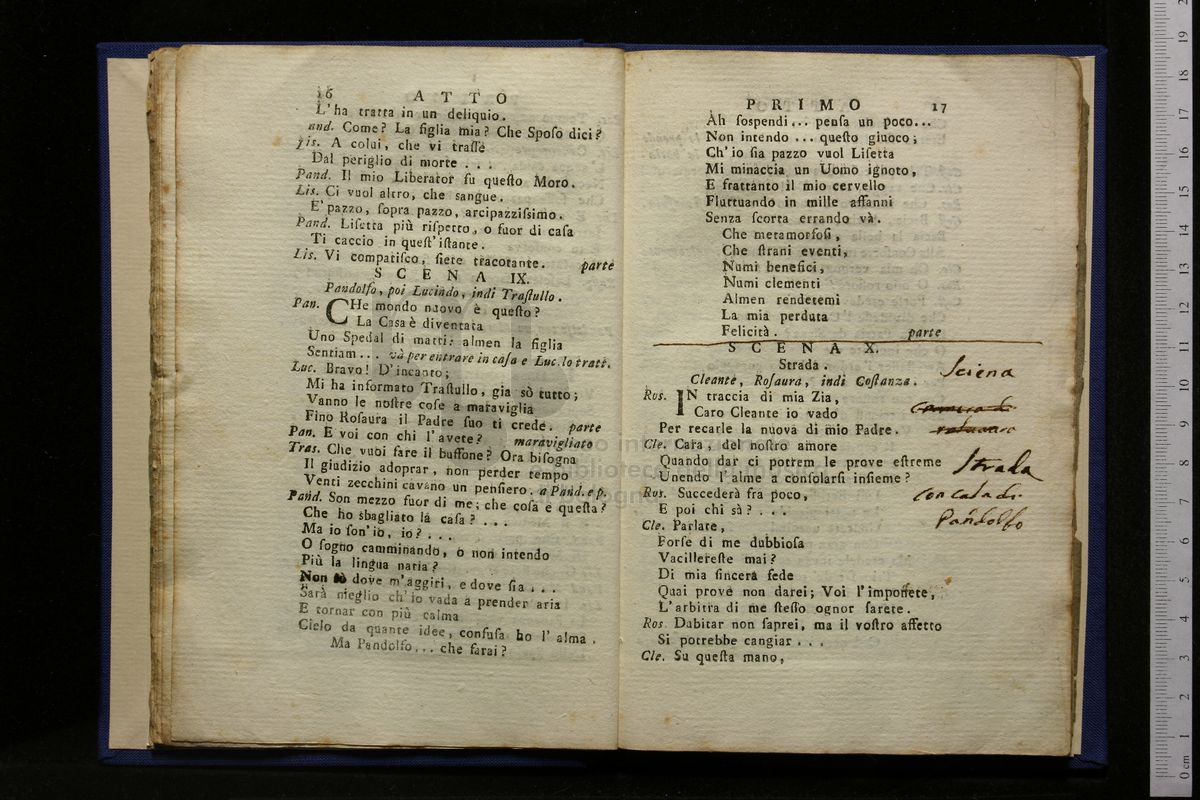 16 ATTO
L'ha tratta in un deliquio.
and. Come? La figlia mia? Che Sposo dici?
Lis. A colui, che vi trasse
Dal periglio di morte . . .
Pand. Il mio Liberator fu questo Moro.
Lis. Ci vuol altro, che sangue.
E' pazzo, sopra pazzo, arcipazzissimo.
Pand. Lisetta più rispetto, o fuor di casa
Ti caccio in quest'istante.
Lis. Vi compatisco, siete tracotante. parte
SCENA IX.
Pandolfo, poi Lucindo, indi Trastullo.
Pan. CHe mondo nuovo è questo?
La Casa è diventata
Uno Spedal di matti: almen la figlia
Sentiam . . . và per entrare in casa e Luc. lo tratt.
Luc. Bravo! D'incanto;
Mi ha informato Trastullo, gia sò tutto;
Vanno le nostre cose a maraviglia
Fino Rosaura il Padre suo ti crede. parte
Pan. E voi con chi l'avete? maravigliato
Tras. Che vuoi fare il buffone? Ora bisogna
Il giudizio adoprar, non perder tempo
Venti zecchini cavano un pensiero. a Pand. e p.
Pand. Son mezzo fuor di me; che cosa è questa?
Che ho sbagliato la casa? . . .
Ma io son'io, io? . . .
O sogno camminando, o non intendo
Più la lingua natia?
Non sò dove m'aggiri, e dove sia . . .
Sarà meglio ch'io vada a prender aria
E tornar con più calma
Cielo da quante idee, confusa ho l'alma.
Ma Pandolfo... che farai?
PRIMO 17
Ah sospendi... pensa un poco...
Non intendo ... questo giuoco;
Ch'io sia pazzo vuol Lisetta
Mi minaccia un Uomo ignoto,
E frattanto il mio cervello
Fluttuando in mille affanni
Senza scorta errando và.
Che metamorfosi,
Che strani eventi,
Numi benefici,
Numi clementi
Almen rendetemi
La mia perduta
Felicità. parte
SCENA X.
Strada.
Sciena
Cleante, Rosaura, indi Costanza.
Ros. IN traccia di mia Zia,
Caro Cleante io vado
Per recarle la nuova di mio Padre.
Cle. Cara, del nostro amore
Quando dar ci potrem le prove estreme
Strada
Unendo l'alme a consolarsi insieme?
Ros. Succederà fra poco,
con casa di
E poi chi sà? . . .
Pandolfo
Cle. Parlate,
Forse di me dubbiosa
Vacillereste mai?
Di mia sincera fede
Quai prove non darei; Voi l'imponete,
L'arbitra di me stesso ognor sarete.
Ros. Dubitar non saprei, ma il vostro affetto
Si potrebbe cangiar . . .
Cle. Su questa mano,